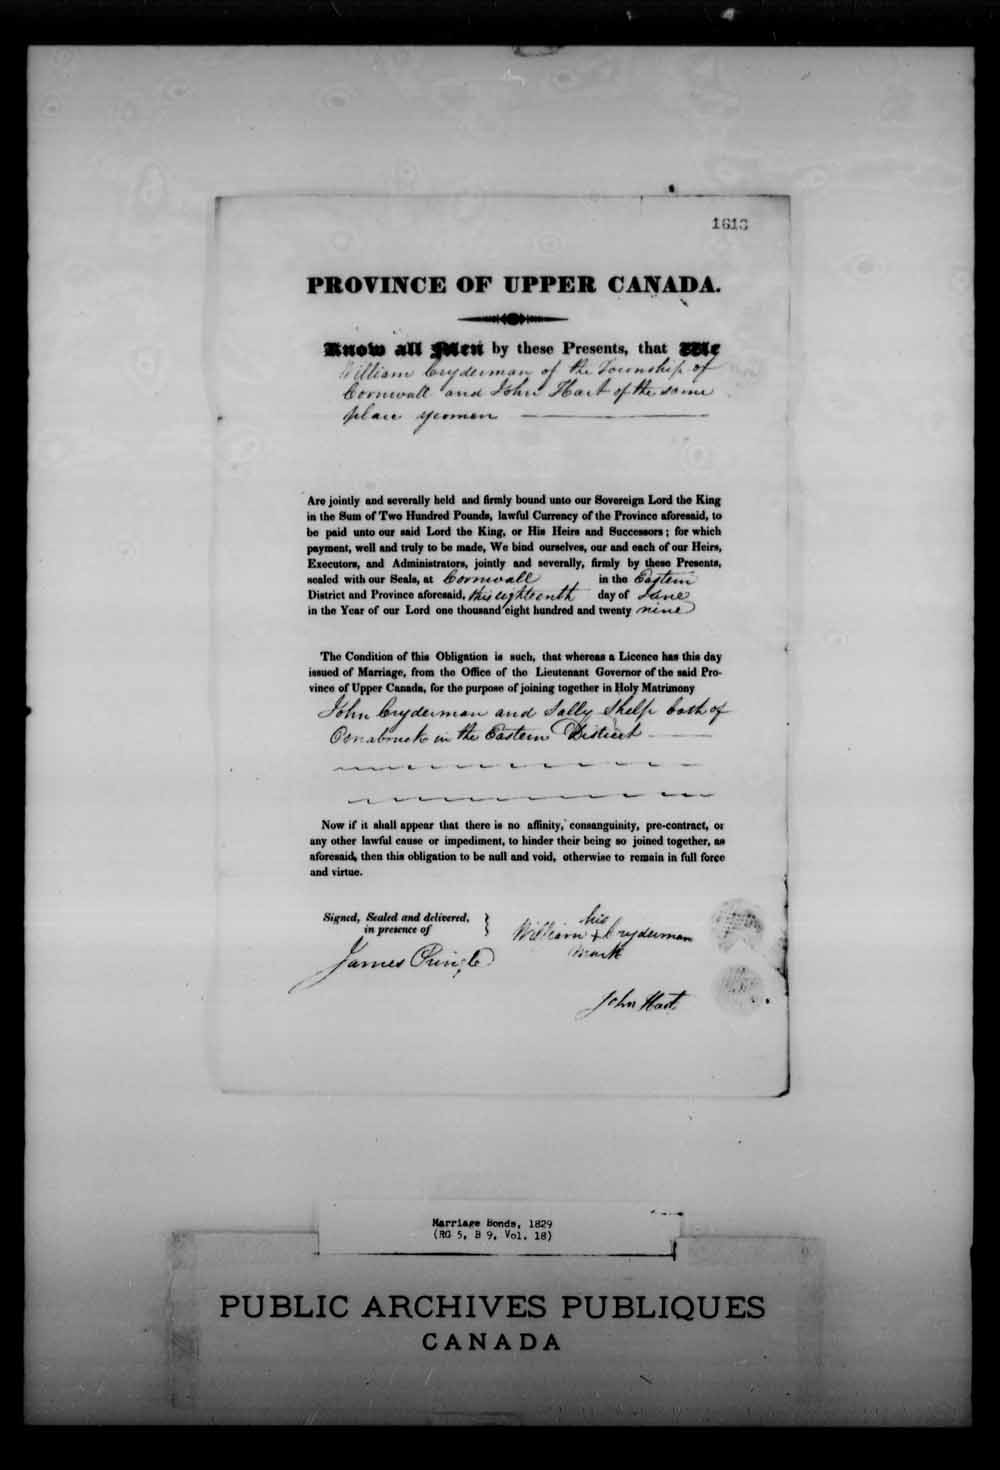 1613
PROVINCE OF UPPER CANADA.
Know all Men by these Presents, that We
William Cryderman of the Township of
Cornwall and John Hart of the same
place yeomen
Are jointly and severally held and firmly bound unto our Sovereign Lord the King
in the Sum of Two Hundred Pounds, lawful Currency of the Province aforesaid, to
be paid unto our said Lord the King, or His Heirs and Successors; for which
payment, well and truly to be made, We bind ourselves, our and each of our Heirs,
Executors, and Administrators, jointly and severally, firmly by these Presents,
sealed with our Seals, at Cornwall in the Eastern
District and Province aforesaid, this eighteenth day of June
in the Year of our Lord one thousand eight hundred and twenty nine
The Condition of this Obligation is such, that whereas a Licence has this day
issued of Marriage, from the Office of the Lieutenant Governor of the said Pro-
vince of Upper Canada, for the purpose of joining together in Holy Matrimony
John Cryderman and Sally Shelp both of
Osnabruck in the Eastern District
Now if it shall appear that there is no affinity, consanguinity, pre-contract, or
any other lawful cause or impediment, to hinder their being so joined together, as
aforesaid, then this obligation to be null and void, otherwise to remain in full force
and virtue.
Signed, Sealed and delivered,
in presence of
his
William + Cryderman
mark
James Pringle
John Hart
Marriage Bonds, 1829
(RG 5, B 9, Vol. 18)
PUBLIC ARCHIVES PUBLIQUES
CANADA